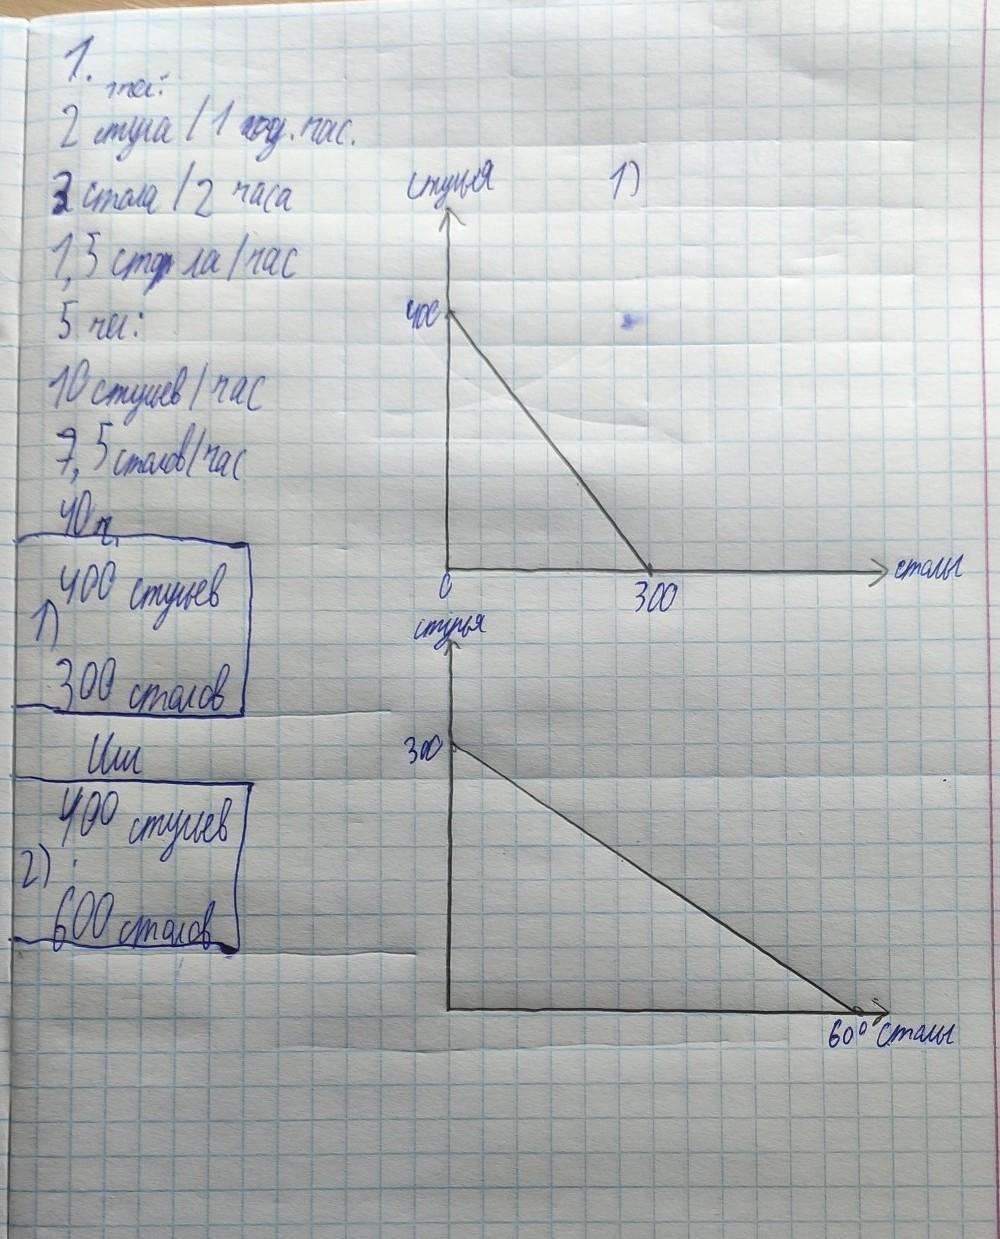 1.
1 чел:
2 стула / 1 чел. час.
3 стола / 2 часа
1,5 стола / час
5 чел:
10 стульев / час
7,5 столов / час
40 ч.
1)
400 стульев
300 столов
Или
2)
400 стульев
600 столов
стулья 1)
400
0
300
столы
стулья
300
600 столы